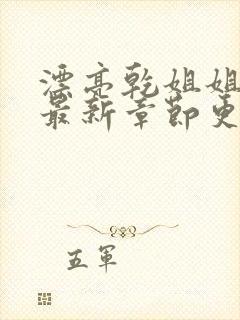 漂亮乾姐姐
最新章節更
五軍